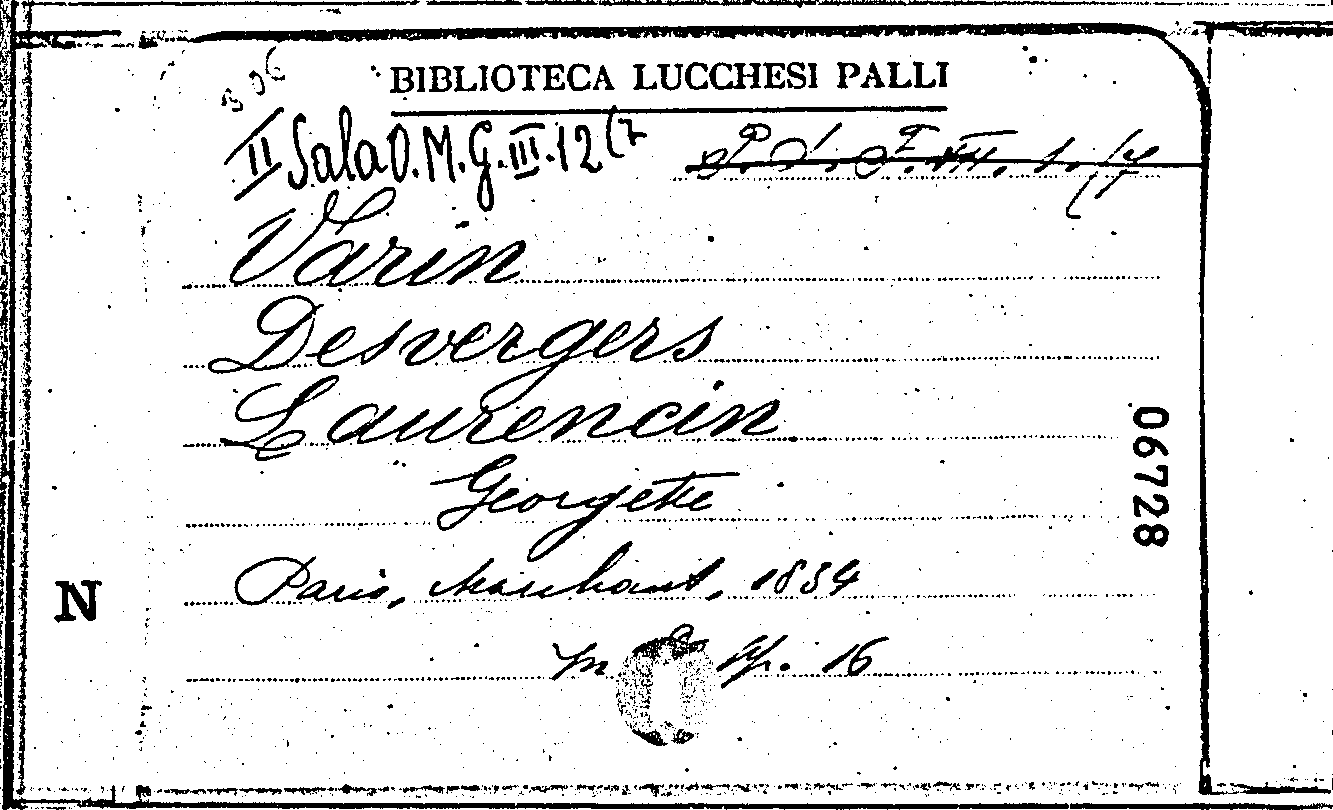 306
BIBLIOTECA LUCCHESI PALLI
II Sala O.M.G.III.12(7
Varin
Desvergers
Laurencin
Georgette
06728
Paris, Marchant, 1834
N
in 8° pp. 16